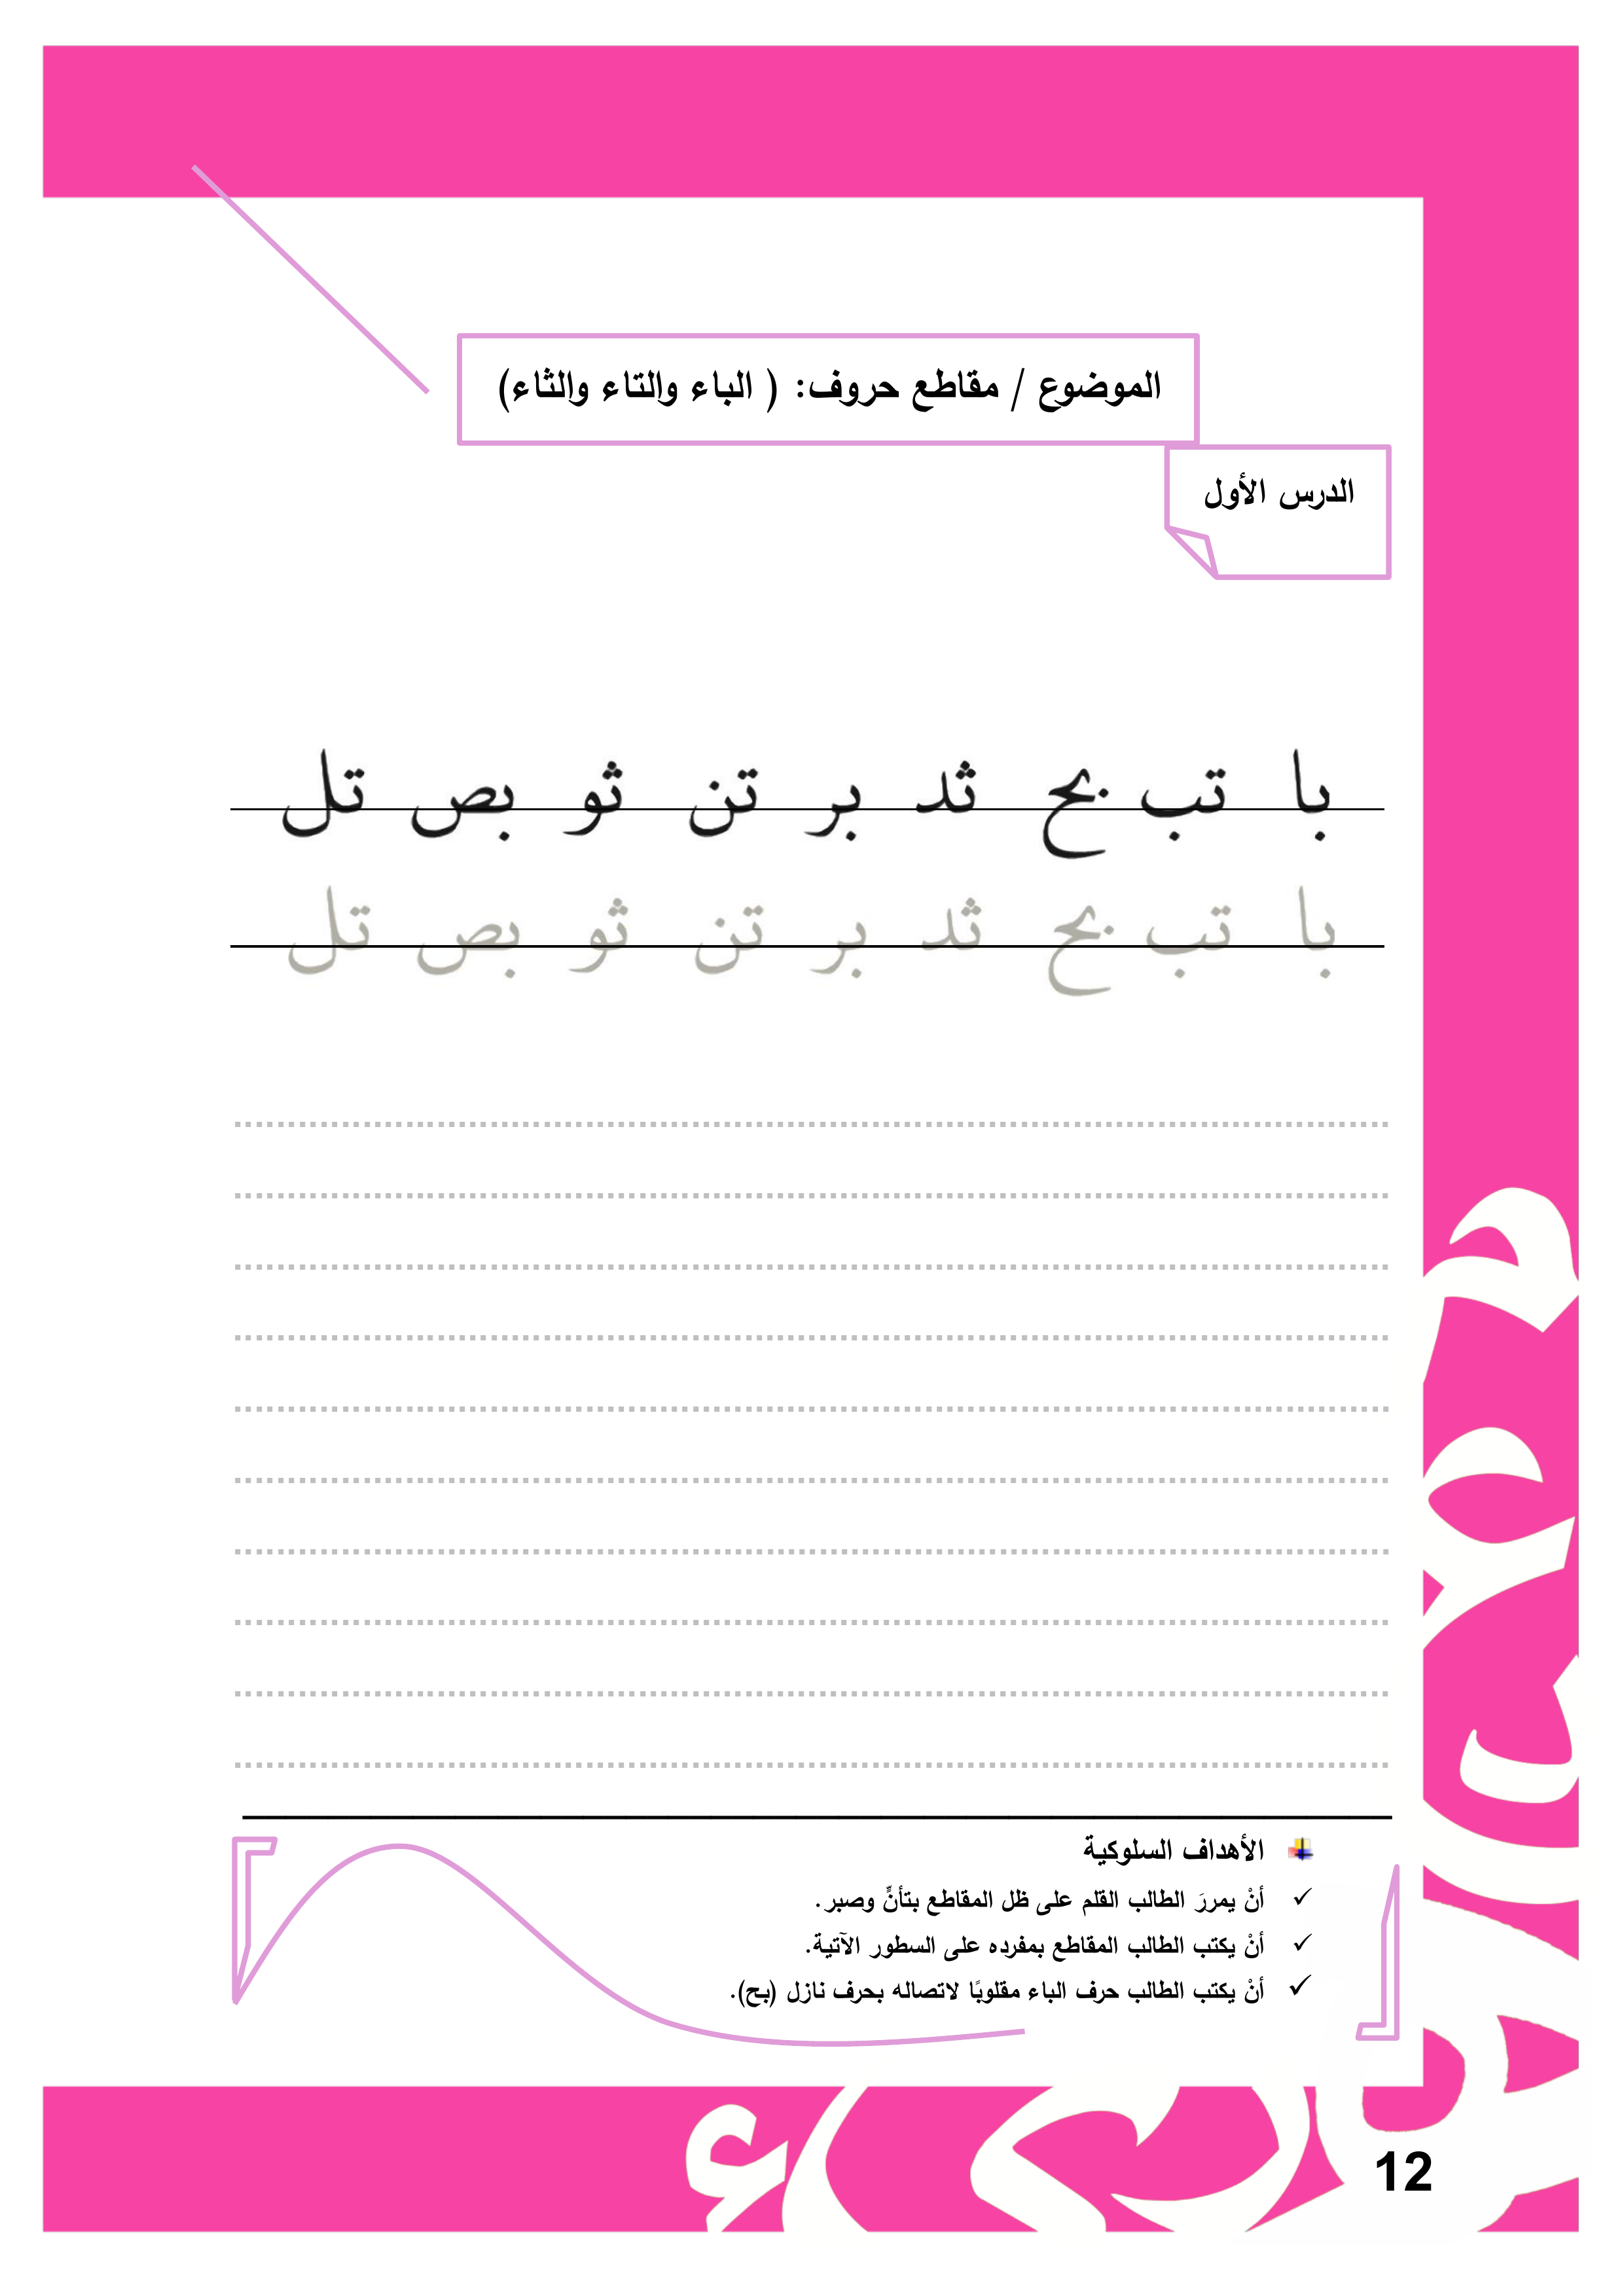 الموضوع / مقاطع حروف: ( الباء والتاء والثاء)
الدرس الأول
با تب بح ثد بر تن ثو بص تل
با تب بح ثد بر تن ثو بص تل
الأهداف السلوكية
أنْ يمررَ الطالب القلم على ظل المقاطع بتأنٍّ وصبر.
أنْ يكتب الطالب المقاطع بمفرده على السطور الآتية.
أنْ يكتب الطالب حرف الباء مقلوبًا لاتصاله بحرف نازل (بح).
12